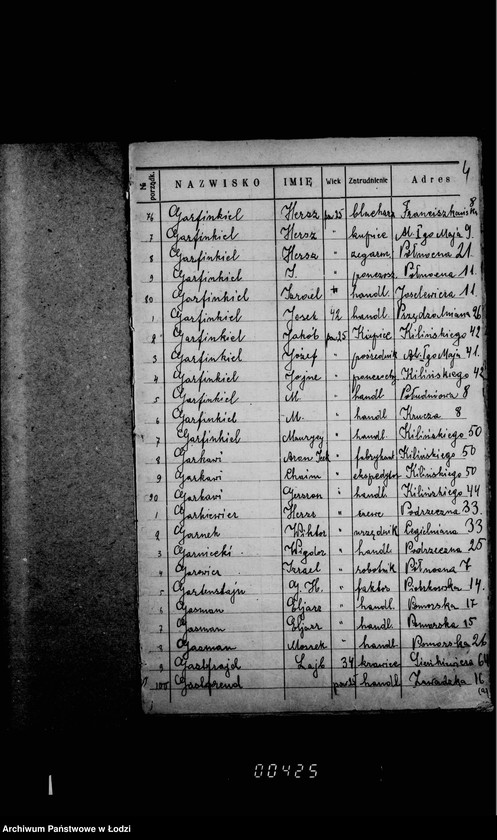 4
№ porządk. NAZWISKO IMIĘ Wiek Zatrudnienie Adres
76 Garfinkiel Hersz pa 25 blacharz Franciszkańska 8
7 Garfinkiel Hersz " kupiec Al. 1go Maja 9.
8 Garfinkiel Hersz " zegarm. Północna 21.
9 Garfinkiel I. " Północna 11.
80 Garfinkiel Izrael " handl. Joselewicza 11.
1 Garfinkiel Josek 42 handl. Przędzalniana 96
2 Garfinkiel Jakób pa 25 Kupiec Kilińskiego 42
3 Garfinkiel Józef " pośrednik Al. 1go Maja 41.
4 Garfinkiel Jojne " Kilińskiego 42
5 Garfinkiel M. " handl Południowa 8
6 Garfinkiel M. " handl Krucza 8
7 Garfinkiel Maurycy " handl. Kilińskiego 50
8 Garkawi Aron Icek " fabrykant Kilińskiego 50
9 Garkawi Chaim " ekspedytor Kilińskiego 50
90 Garkawi Gerszon " handl. Kilińskiego 44
1 Garkiewicz Hersz " Podrzeczna 33.
2 Garnek Wiktor " urzędnik Cegielniana 33
3 Garniecki Wigdor " handl. Podrzeczna 25
4 Garwicz Izrael " robotnik Północna 7
5 Gartensztajn G. H. " faktor Piotrkowska 14.
6 Gasman Eljasz " handl. Pomorska 17
7 Gasman Eljasz " handl. Pomorska 25
8 Gasman Moszek " handl Pomorska 26
9 Gastfrajd Lajb 34 krawiec 64
100 Gastfrend pa 25 handl. Zawadzka 16
00425
Archiwum Państwowe w Łodzi